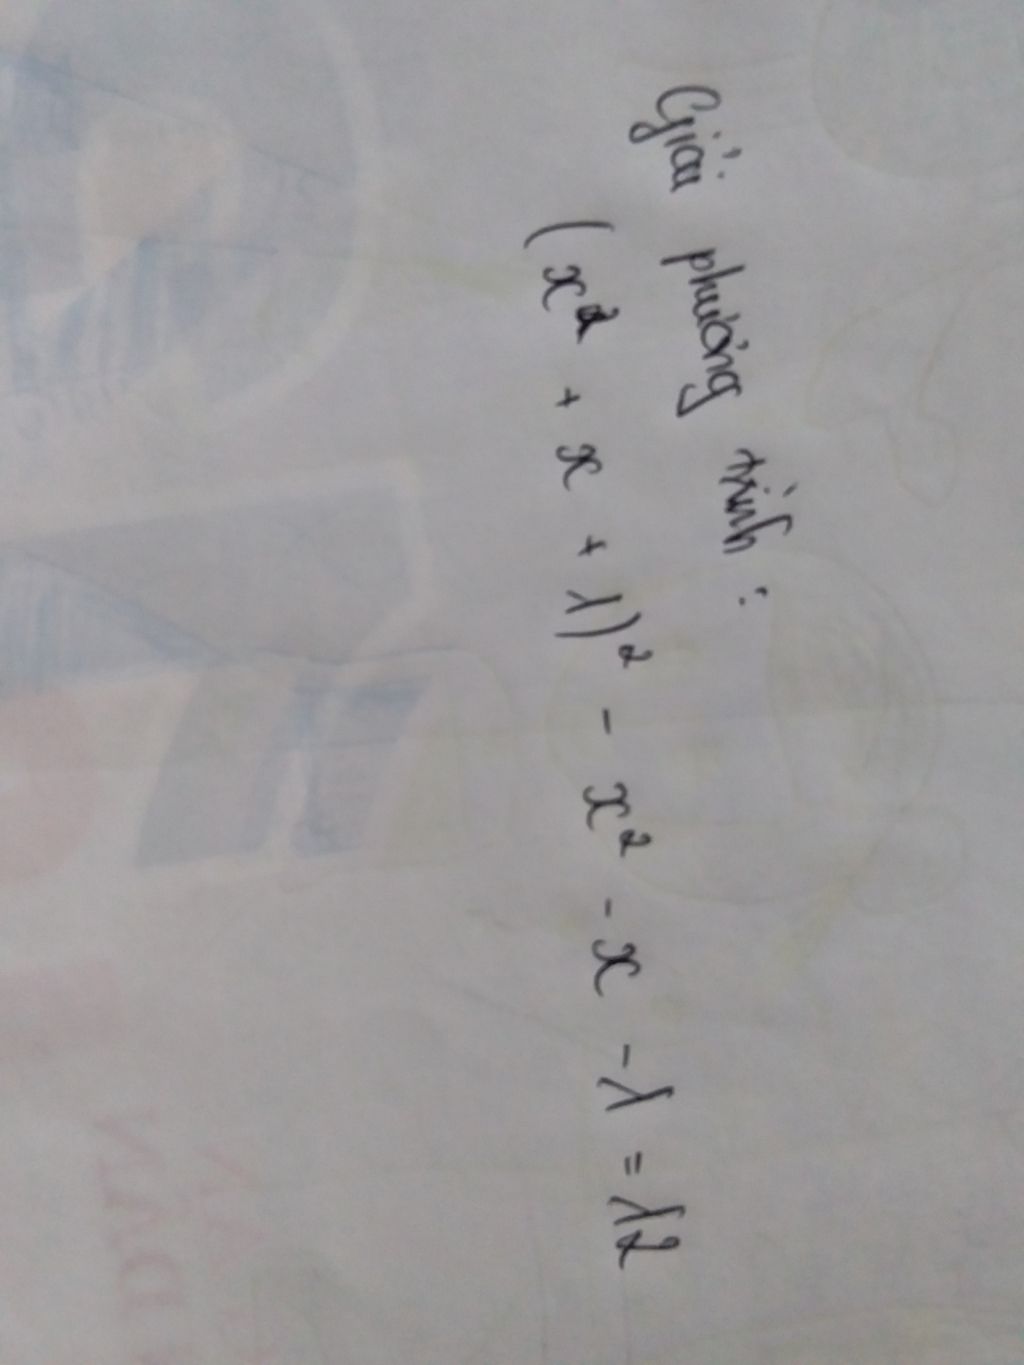 Giải phương trình :
(x² + x + 1)² - x² - x - 1 = 12